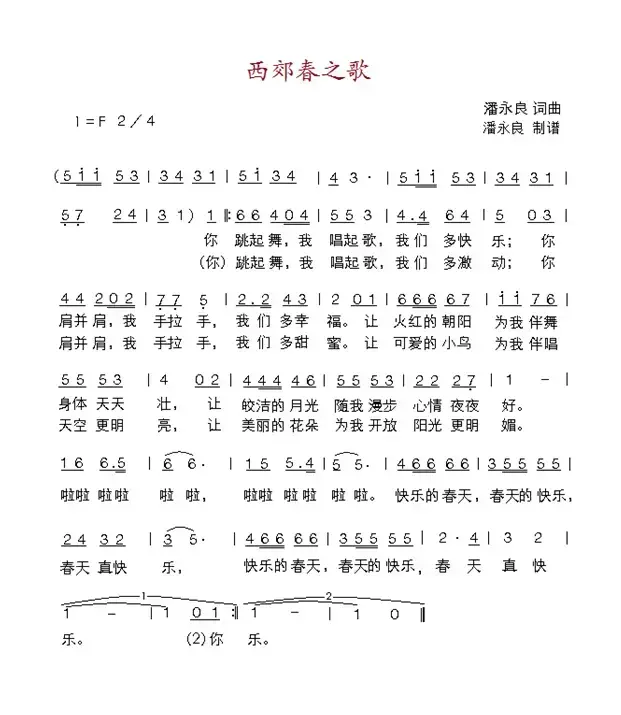 西郊春之歌
潘永良 词曲
1=F 2／4
潘永良 制谱
(5 i i 5 3 | 3 4 3 1 | 5 i 3 4 | 4 3 · | 5 i i 5 3 | 3 4 3 1 |
5 7 2 4 | 3 1 ) 1 ‖: 6 6 4 0 4 | 5 5 3 | 4 . 4 6 4 | 5 0 3 |
你 跳起舞，我 唱起歌，我们 多快 乐；你
(你) 跳起舞，我 唱起歌，我们 多激 动；你
4 4 2 0 2 | 7 7 5 | 2 . 2 4 3 | 2 0 1 | 6 6 6 6 7 | i i 7 6 |
肩并肩，我 手拉 手，我们多幸 福。让 火红的朝阳 为我伴舞
肩并肩，我 手拉 手，我们多甜 蜜。让 可爱的小鸟 为我伴唱
5 5 5 3 | 4 0 2 | 4 4 4 4 6 | 5 5 5 3 | 2 2 2 7 | 1 – |
身体 天天 壮，让 皎洁的月光 随我漫步 心情夜夜 好。
天空 更明 亮，让 美丽的花朵 为我开放 阳光更明 媚。
1 6 6 . 5 | 6 6 · | 1 5 5 . 4 | 5 5 · | 4 6 6 6 6 | 3 5 5 5 5 |
啦啦 啦啦 啦 啦， 啦啦 啦啦 啦 啦。 快乐的春天，春天的快乐，
2 4 3 2 | 3 5 · | 4 6 6 6 6 | 3 5 5 5 5 | 2 · 4 | 3 2 |
春天 真快 乐， 快乐的春天，春天的快乐，春 天 真 快
1 2
1 – | 1 0 1 :‖ 1 – | 1 0 ‖
乐。 (2)你 乐。